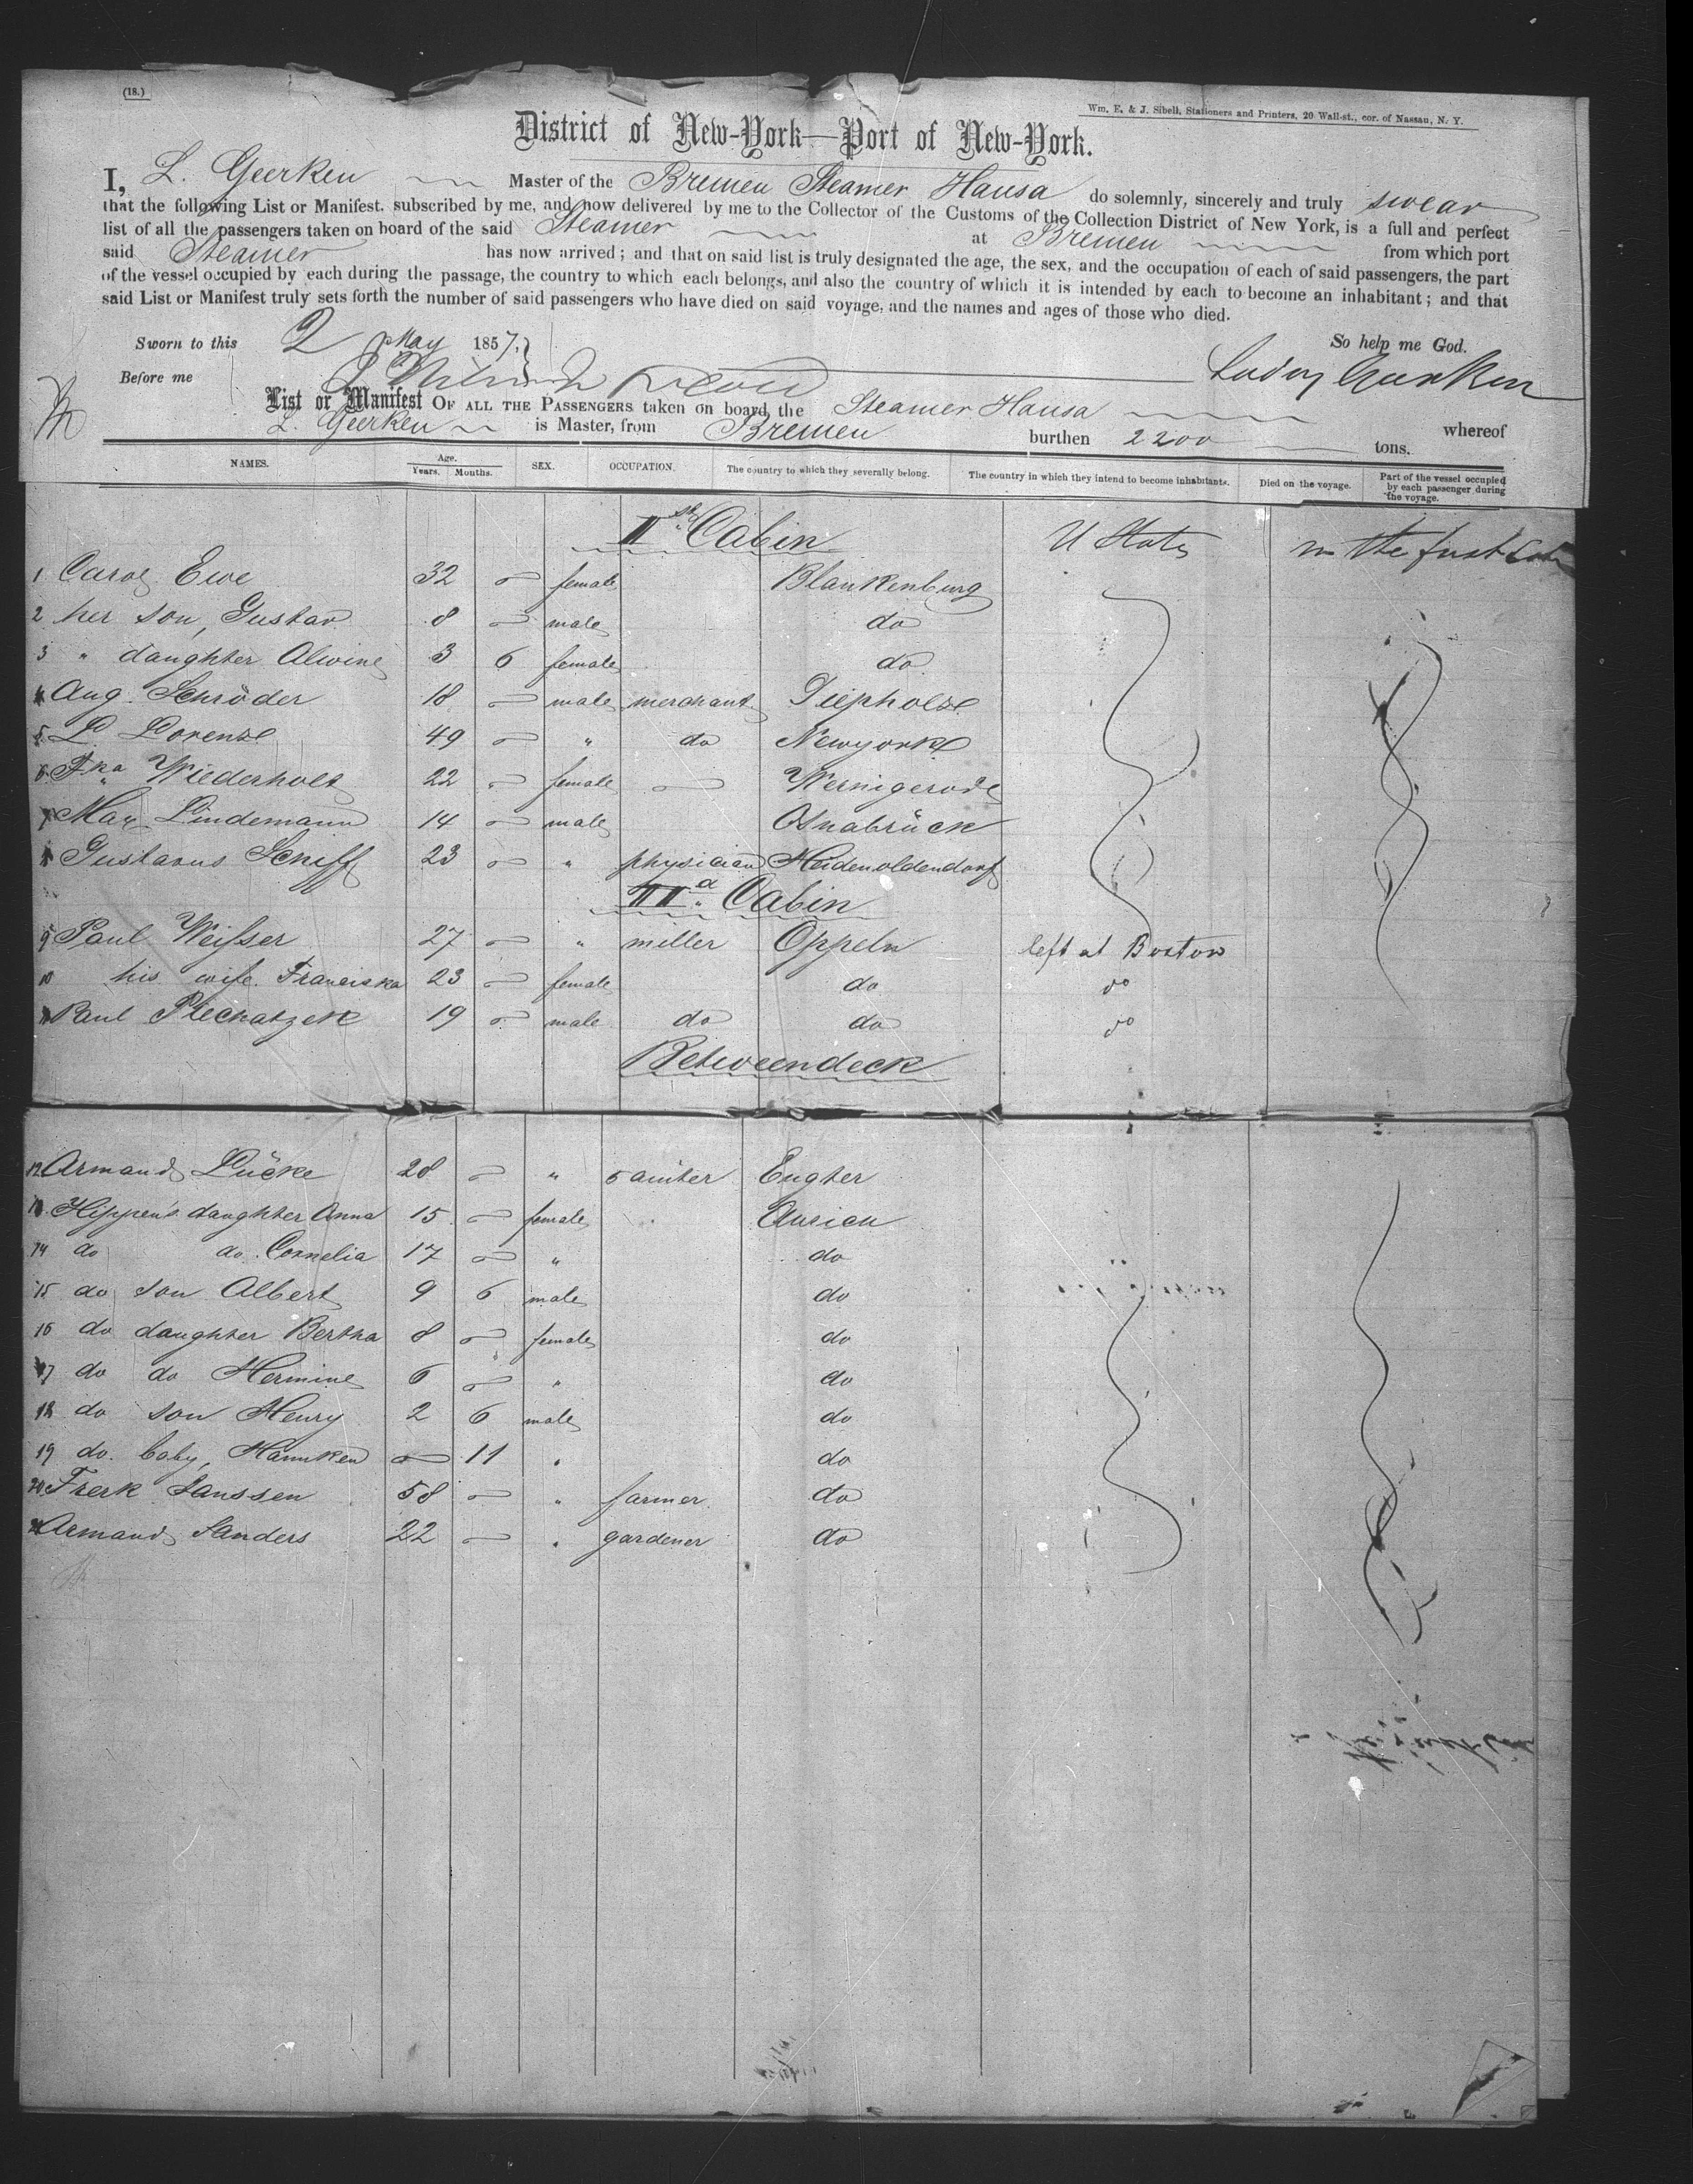 (18.)
Wm. E. & J. Sibell, Stationers and Printers, 20 Wall-st., cor. of Nassau, N. Y.
District of New-York—Port of New-York.
I, L. Geerken Master of the Bremen Steamer Hansa do solemnly, sincerely and truly swear
that the following List or Manifest, subscribed by me, and now delivered by me to the Collector of the Customs of the Collection District of New York, is a full and perfect
list of all the passengers taken on board of the said Steamer at Bremen from which port
said Steamer has now arrived; and that on said list is truly designated the age, the sex, and the occupation of each of said passengers, the part
of the vessel occupied by each during the passage, the country to which each belongs, and also the country of which it is intended by each to become an inhabitant; and that
said List or Manifest truly sets forth the number of said passengers who have died on said voyage, and the names and ages of those who died.
Sworn to this 2 May 1857, So help me God.
Before me
List or Manifest OF ALL THE PASSENGERS taken on board the Steamer Hansa whereof
L. Geerken is Master, from Bremen burthen 2200 tons.
NAMES. Age. Years. Months. SEX. OCCUPATION. The country to which they severally belong. The country in which they intend to become inhabitants. Died on the voyage. Part of the vessel occupied by each passenger during the voyage.
Cabin U States in the first
1 Carol Ewe 32 female Blankenburg
2 her son, Gustav 8 male do
3 " daughter Alwine 3 6 female do
4 Aug. Schröder 18 male merchant Diepholze
5 L Lorenze 49 " do Newyork
6 Fka Wiederholt 22 female Wernigerode
7 Max Lindemann 14 male Osnabrück
8 Gustavus Schiff 23 " physician Heidenoldendorf
IId Cabin
9 Paul Weisser 27 " miller Oppeln left at Boston
10 his wife Franciska 23 female do do
11 Paul Plechatzek 19 male do do do
Betweendeck
12 Armand Lücke 28 " Engter
13 Hippen's daughter Anna 15 female Aurich
14 do do Cornelia 17 " do
15 do son Albert 9 6 male do
16 do daughter Bertha 8 female do
17 do do Hermine 6 " do
18 do son Henry 2 6 male do
19 do baby, Hannken 11 " do
20 Frerk Janssen 58 " farmer do
21 Armand Sanders 22 " gardener do